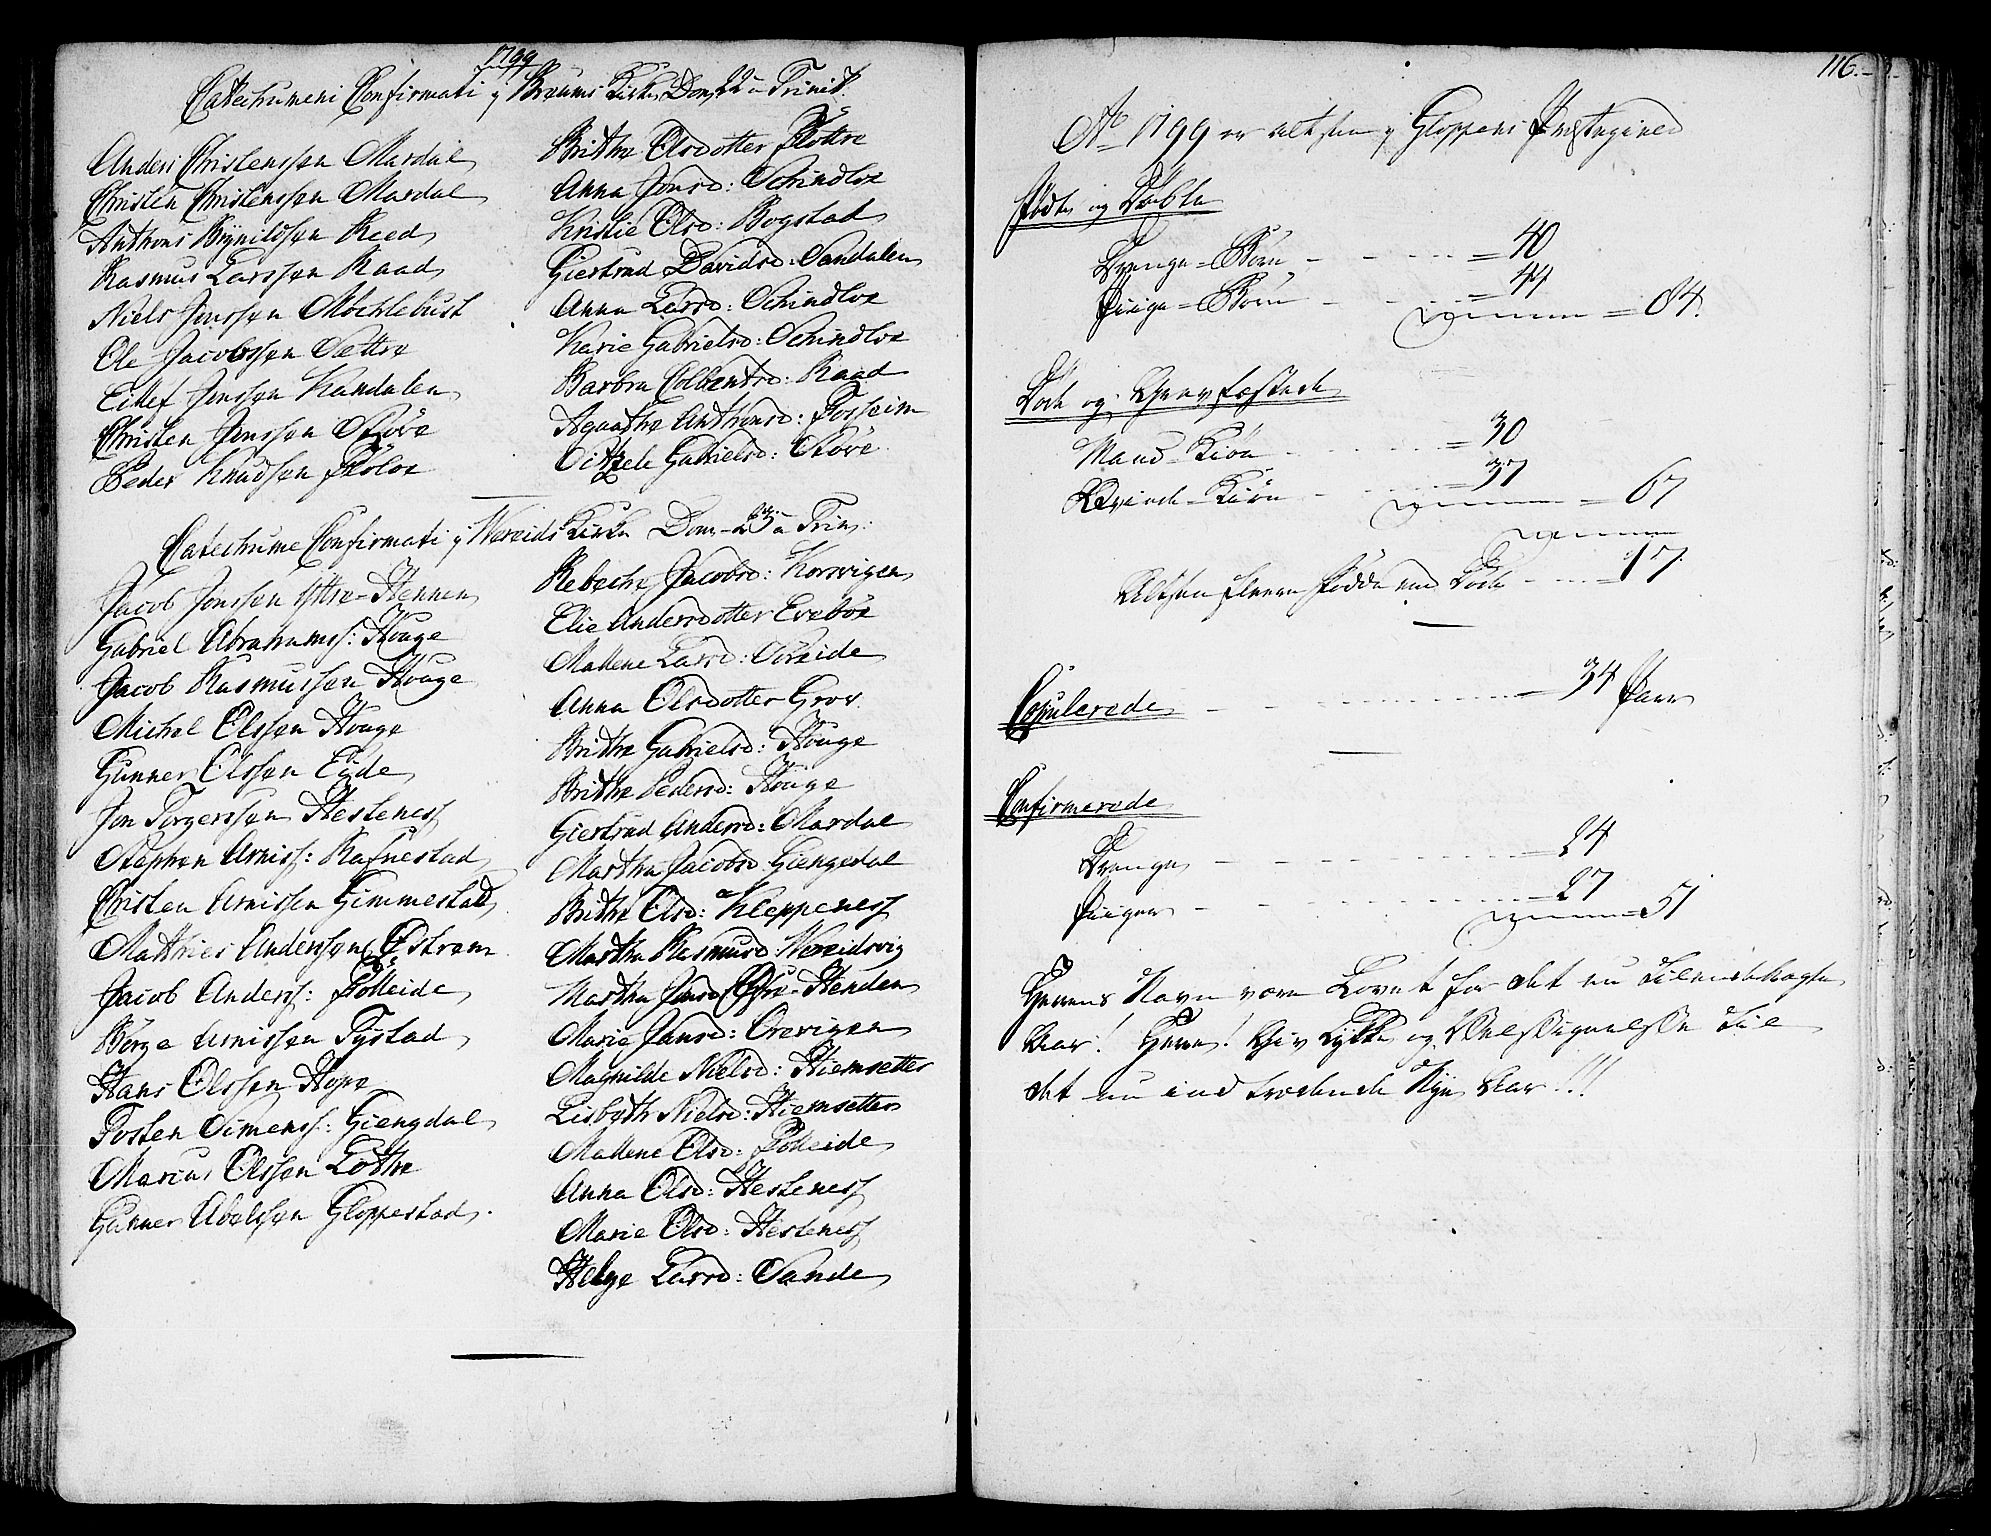 1799
Catechumeni Confirmati i Breums Kirke Dom 22 a Trinit.
Anders Christenssen Mardal
Christen Christenssen Mardal
Anthoni Brynildsen Reed
Rasmus Larssen Raad
Niels Jenssen Mochlebust
Ole Jacobssen Settre
Ellef Jenssen Kandalen
Christen Jenssen Støve
Peder Knudssen Fløloe
Brithe Olsdotter Flottre
Anna Jonsd: Schindloe
Kristie Olsd: Bogstad
Giertrud Davidsd: Sandalen
Anna Larsd: Schindloe
Karie Gabrielsd: Schindloe
Barbra Colbentsd: Raad
Agaathe Anthonsd: Fosheim
Sitzele Gabrielsd: Støve
Catechume Confirmati i Nereids Kirke Dom 23 a Trin:
Jacob Jonssen Yttre-Hennen
Gabriel Abrahamss: Houge
Jacob Rasmussen Houge
Michel Olssen Houge
Gunner Olssen Eyde
Jon Torgerssen Hestenes
Stephen Arniss: Rafnestad
Christen Arnissen Gimmestad
Matthies Anderssen Østrem
Jacob Anderss: Solleide
Børge Arnissen Tystad
Hans Olssen Hope
Tosten Simenss: Giengdal
Marcus Olssen Lothe
Gunner Abelssen Gloppestad
Rebeche Jacobsd: Korsvigen
Elie Andersdotter Evebøe
Mallene Larsd: Søreide
Anna Olsdotter Grov
Brithe Gabrielsd: Houge
Brithe Pedersd: Houge
Giertrud Andersd: Mardal
Martha Jacobsd Giengedal
Brithe Olsd: Kleppenes
Martha Rasmusd Nereidsvig
Martha Jonsd Øfre-Henden
Marie Jansd: Orevigen
Magnilde Nielsd: Hiemsetter
Lisbeth Nielsd: Hiemsetter
Mallene Olsd: Solleide
Anna Olsd: Hestenes
Marie Olsd: Hestenes
Helge Larsd: Sande
116.
Ao 1799 er altsaa i Gloppens Præstegield
Fødte og Døbte
Drenge-Børn = 40
Piige-Børn = 44
Summa = 84.
Døde og Gravfæstede
Mand-Kiøn = 30
Qvinde-Kiøn = 37
Summa = 67
Summa
Altsaa fleere fødde end Døde 17.
Copulerede 34 Paar
Confirmerede
Drenge 24
Piiger 27
Summa = 51
Herrens Navn være Lovet for det nu tilendebragte
Aar! Herre! Giv Lykke og Velsignelse til
det nu ind trædende Nye Aar!!!